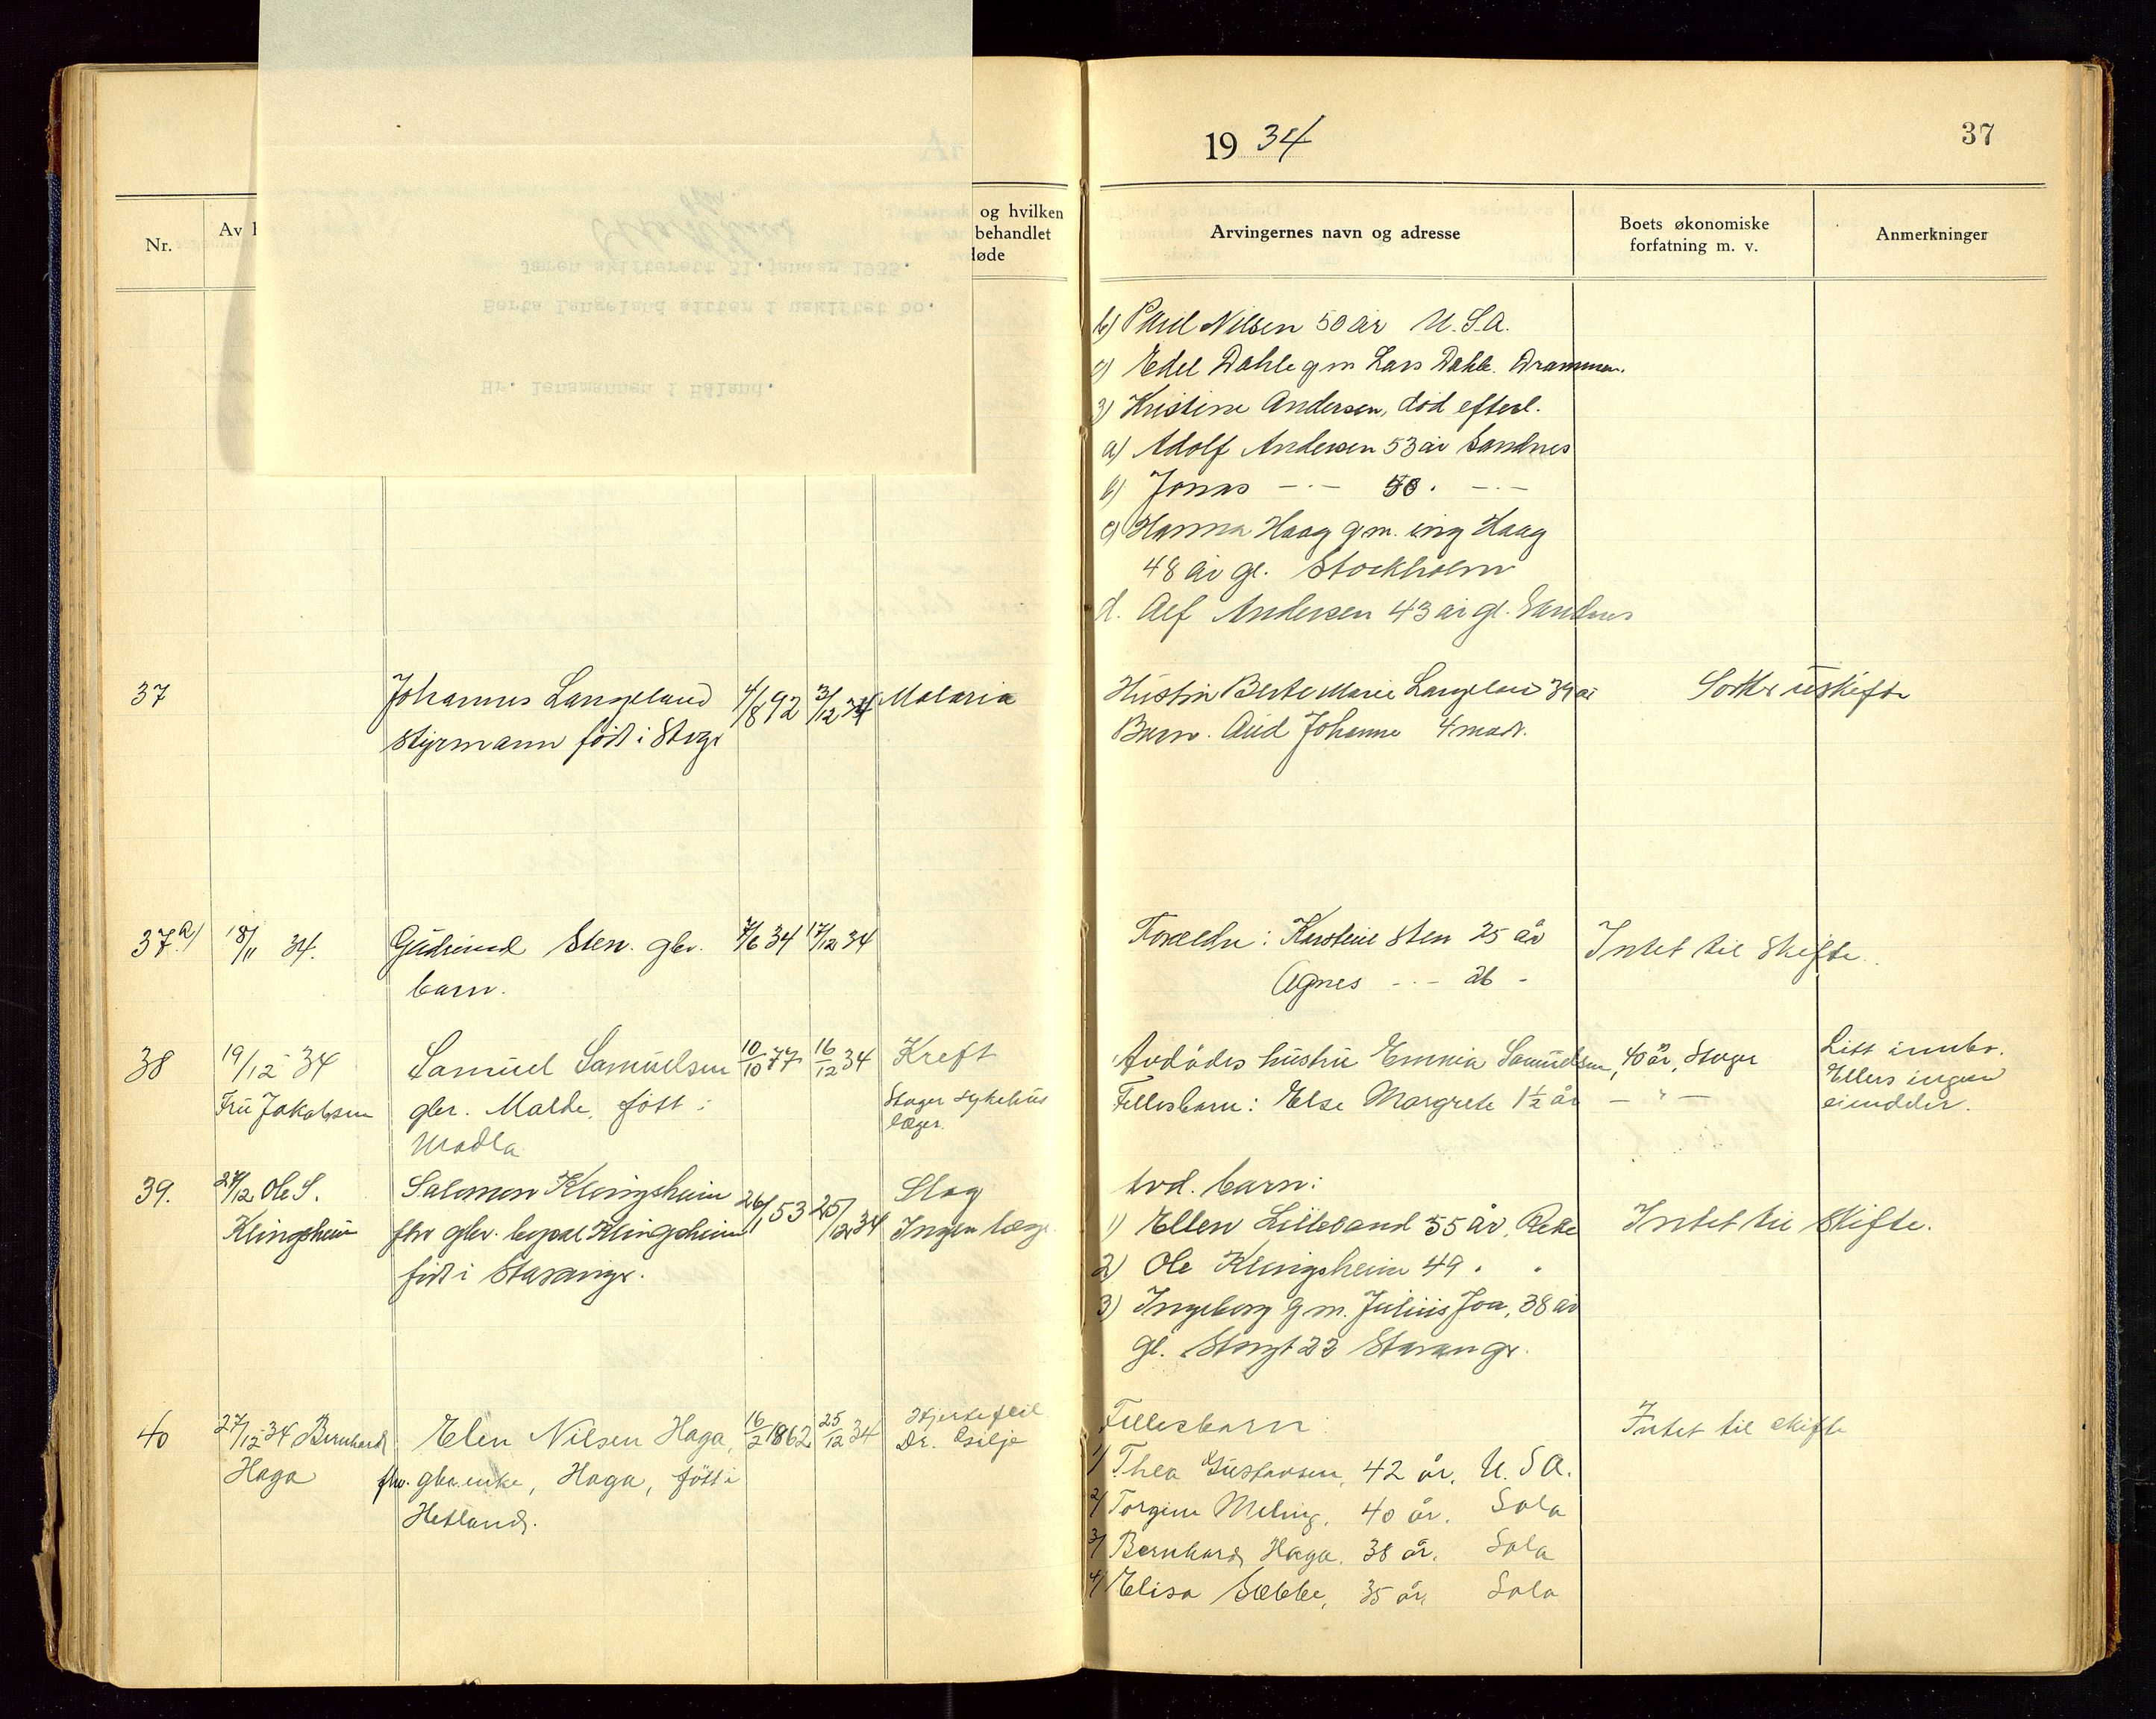 19 34
37
Nr.
Av
og hvilken
behandlet
døde
Arvingernes navn og adresse
Boets økonomiske
forfatning m. v.
Anmerkninger
Jæren skifterett 31. januar 1935.
Berta Langeland sitter i uskiftet bo.
Hr. lensmannen i Håland.
b) Paul Nilsen 50 år U.S.A.
c) Edel Dahle gm Lars Dahle. Drammen.
3) Kristine Andersen, død efterl.
a) Adolf Andersen 53 år Sandnes
b) Jonas -·- 50 · -·-
c) Hanna Haag gm. ing Haag
48 år gl. Stockholm
d. Alf Andersen 43 år gl. Sandnes
37
Johannes Langeland
Styrmann født i Stvgr
4/8 92
3/12 34
Malaria
Hustru Berte Marie Langeland 39 år
Barn. Aud Johanne 4 mndr.
uskifte
37 a)
18/11 34.
Gudmund Sten. gbr.
barn.
7/6 34
17/12 34
Foreldre: Karsteine Sten 25 år
Agnes -·- 26 -
Intet til Skifte.
38
19/12 34
Fru Jakobsen
Samuel Samuelsen
gbr. Malde, født i
Madla
10/10 77
16/12 34
Kreft
Stvgr sykehus
læger.
Avdødes hustru Emmia Samuelsen, 40 år, Stvgr
Fellesbarn: Else Margrete 1½ år - " -
Litt innbo.
Ellers ingen
eiendeler.
39.
27/12 Ole S.
Klingsheim
Salomon Klingsheim
fhv gbr. bopæl Klingsheim
født i Stavanger.
26/1 53
25/12 34
Slag
Ingen læge
avd. barn:
1) Ellen Lilleland 55 år, Rege
2) Ole Klingsheim 49 " "
3) Ingeborg gm. Julius Joa, 38 år
gl. Storgt 23 Stavanger.
Intet til Skifte.
40
27/12 34 Bernhard
Haga
Elen Nilsen Haga,
fhv. gbr.enke, Haga, født i
Hetland.
16/2 1862
25/12 34
Hjertefeil
Dr. Gilje
Fellesbarn:
1/ Thea Gustavsen, 42 år, U.S.A.
2/ Torgine Meling, 40 år. Sola
3/ Bernhard Haga, 38 år. Sola
4/ Elisa Sæbbe, 35 år, Sola
Intet til skifte